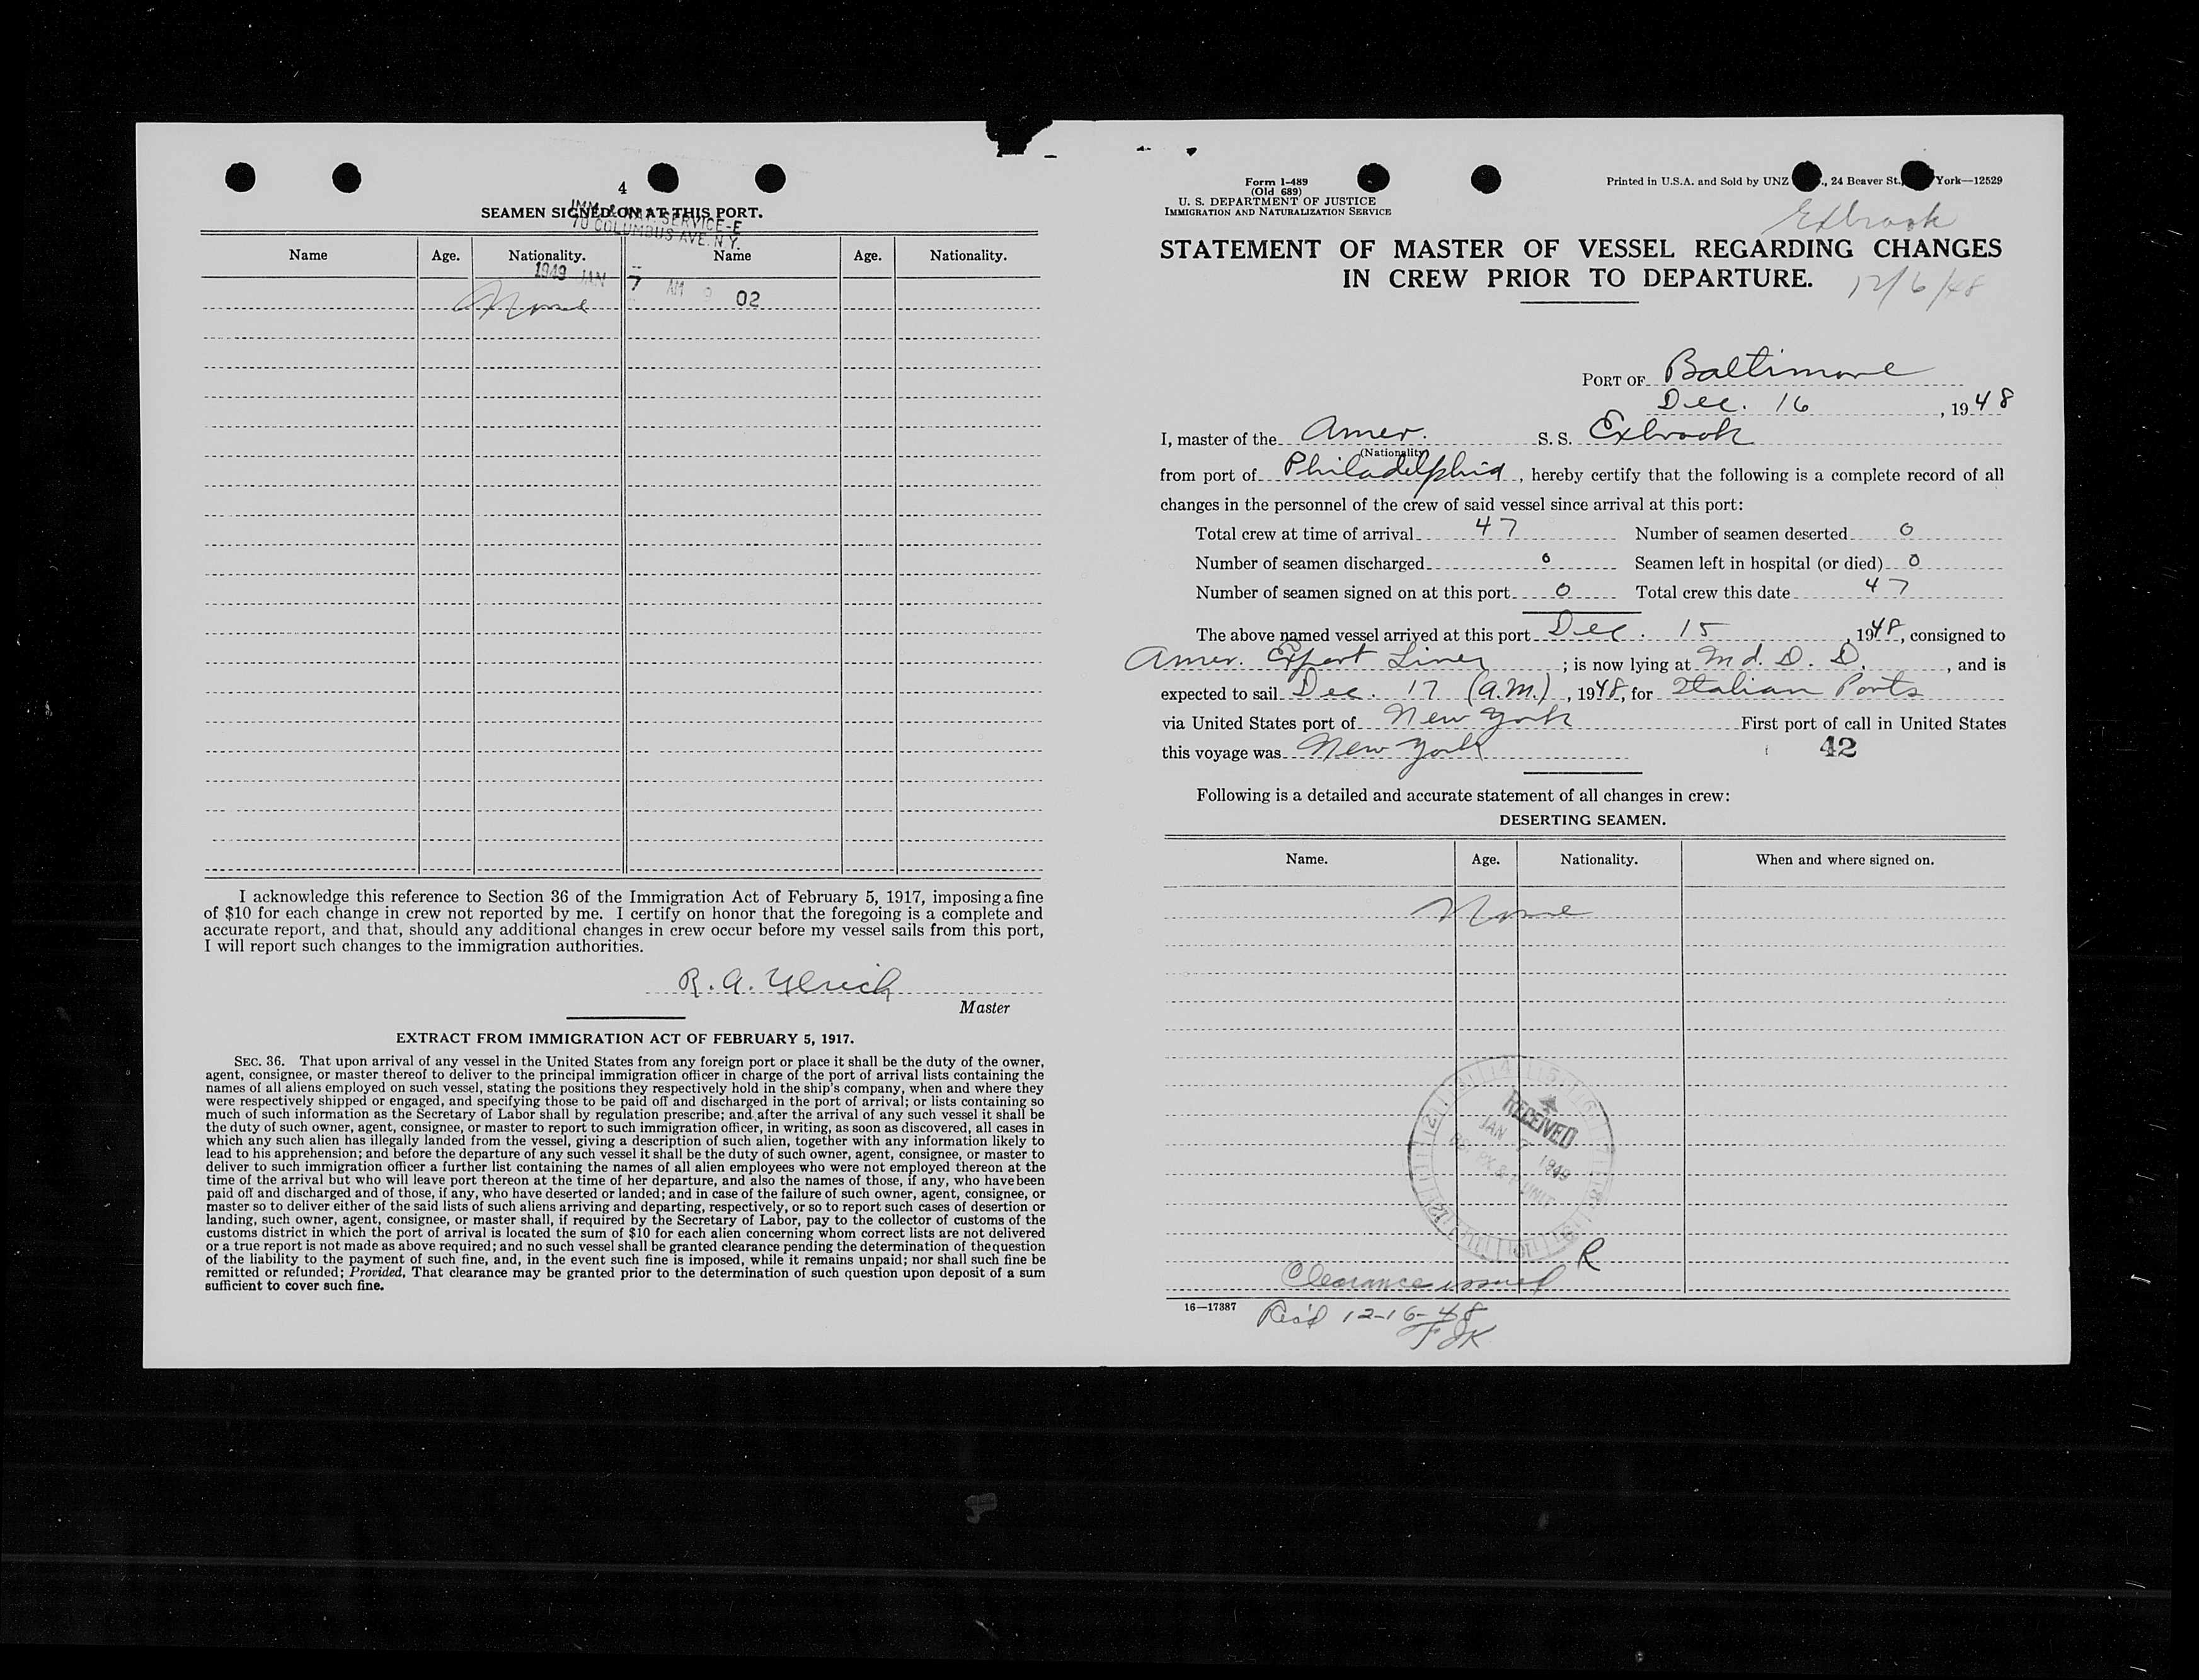 4
SEAMEN SIGNED ON AT THIS PORT.
IMM. & NAT. SERVICE-E
70 COLUMBUS AVE. N.Y.
Name Age. Nationality. Name Age. Nationality.
1949 JAN 7 AM 9 02
None
I acknowledge this reference to Section 36 of the Immigration Act of February 5, 1917, imposing a fine
of $10 for each change in crew not reported by me. I certify on honor that the foregoing is a complete and
accurate report, and that, should any additional changes in crew occur before my vessel sails from this port,
I will report such changes to the immigration authorities.
R. A. Ulrich
Master
EXTRACT FROM IMMIGRATION ACT OF FEBRUARY 5, 1917.
SEC. 36. That upon arrival of any vessel in the United States from any foreign port or place it shall be the duty of the owner,
agent, consignee, or master thereof to deliver to the principal immigration officer in charge of the port of arrival lists containing the
names of all aliens employed on such vessel, stating the positions they respectively hold in the ship's company, when and where they
were respectively shipped or engaged, and specifying those to be paid off and discharged in the port of arrival; or lists containing so
much of such information as the Secretary of Labor shall by regulation prescribe; and after the arrival of any such vessel it shall be
the duty of such owner, agent, consignee, or master to report to such immigration officer, in writing, as soon as discovered, all cases in
which any such alien has illegally landed from the vessel, giving a description of such alien, together with any information likely to
lead to his apprehension; and before the departure of any such vessel it shall be the duty of such owner, agent, consignee, or master to
deliver to such immigration officer a further list containing the names of all alien employees who were not employed thereon at the
time of the arrival but who will leave port thereon at the time of her departure, and also the names of those, if any, who have been
paid off and discharged and of those, if any, who have deserted or landed; and in case of the failure of such owner, agent, consignee, or
master so to deliver either of the said lists of such aliens arriving and departing, respectively, or so to report such cases of desertion or
landing, such owner, agent, consignee, or master shall, if required by the Secretary of Labor, pay to the collector of customs of the
customs district in which the port of arrival is located the sum of $10 for each alien concerning whom correct lists are not delivered
or a true report is not made as above required; and no such vessel shall be granted clearance pending the determination of the question
of the liability to the payment of such fine, and, in the event such fine is imposed, while it remains unpaid; nor shall such fine be
remitted or refunded; Provided, That clearance may be granted prior to the determination of such question upon deposit of a sum
sufficient to cover such fine.
Form I-489
(Old 689)
U. S. DEPARTMENT OF JUSTICE
IMMIGRATION AND NATURALIZATION SERVICE
Printed in U.S.A. and Sold by UNZ ., 24 Beaver St., York—12529
Exbrook
STATEMENT OF MASTER OF VESSEL REGARDING CHANGES
IN CREW PRIOR TO DEPARTURE.
12/6/48
PORT OF Baltimore
Dec. 16, 1948
I, master of the Amer. S. S. Exbrook
(Nationality)
from port of Philadelphia, hereby certify that the following is a complete record of all
changes in the personnel of the crew of said vessel since arrival at this port:
Total crew at time of arrival 47 Number of seamen deserted 0
Number of seamen discharged 0 Seamen left in hospital (or died) 0
Number of seamen signed on at this port 0 Total crew this date 47
The above named vessel arrived at this port Dec. 15, 1948, consigned to
Amer. Export Lines; is now lying at Md. D. D., and is
expected to sail Dec. 17 (a.m.), 1948, for Italian Ports
via United States port of New York First port of call in United States
this voyage was New York 42
Following is a detailed and accurate statement of all changes in crew:
DESERTING SEAMEN.
Name. Age. Nationality. When and where signed on.
None
RECEIVED
JAN 7 1949
UNIT
R
Clearance issued
16—17387
Rec'd 12-16-48
FJK